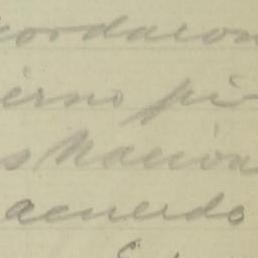 cordaron
ierno pi-
s Nacion
acuerdo